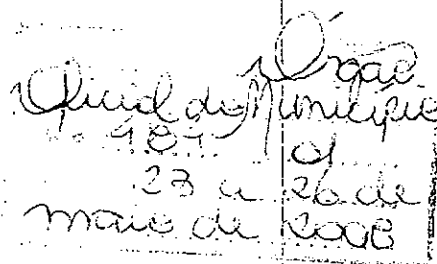 Órgão
Oficial do Município
23 a 26 de
maio de 2008